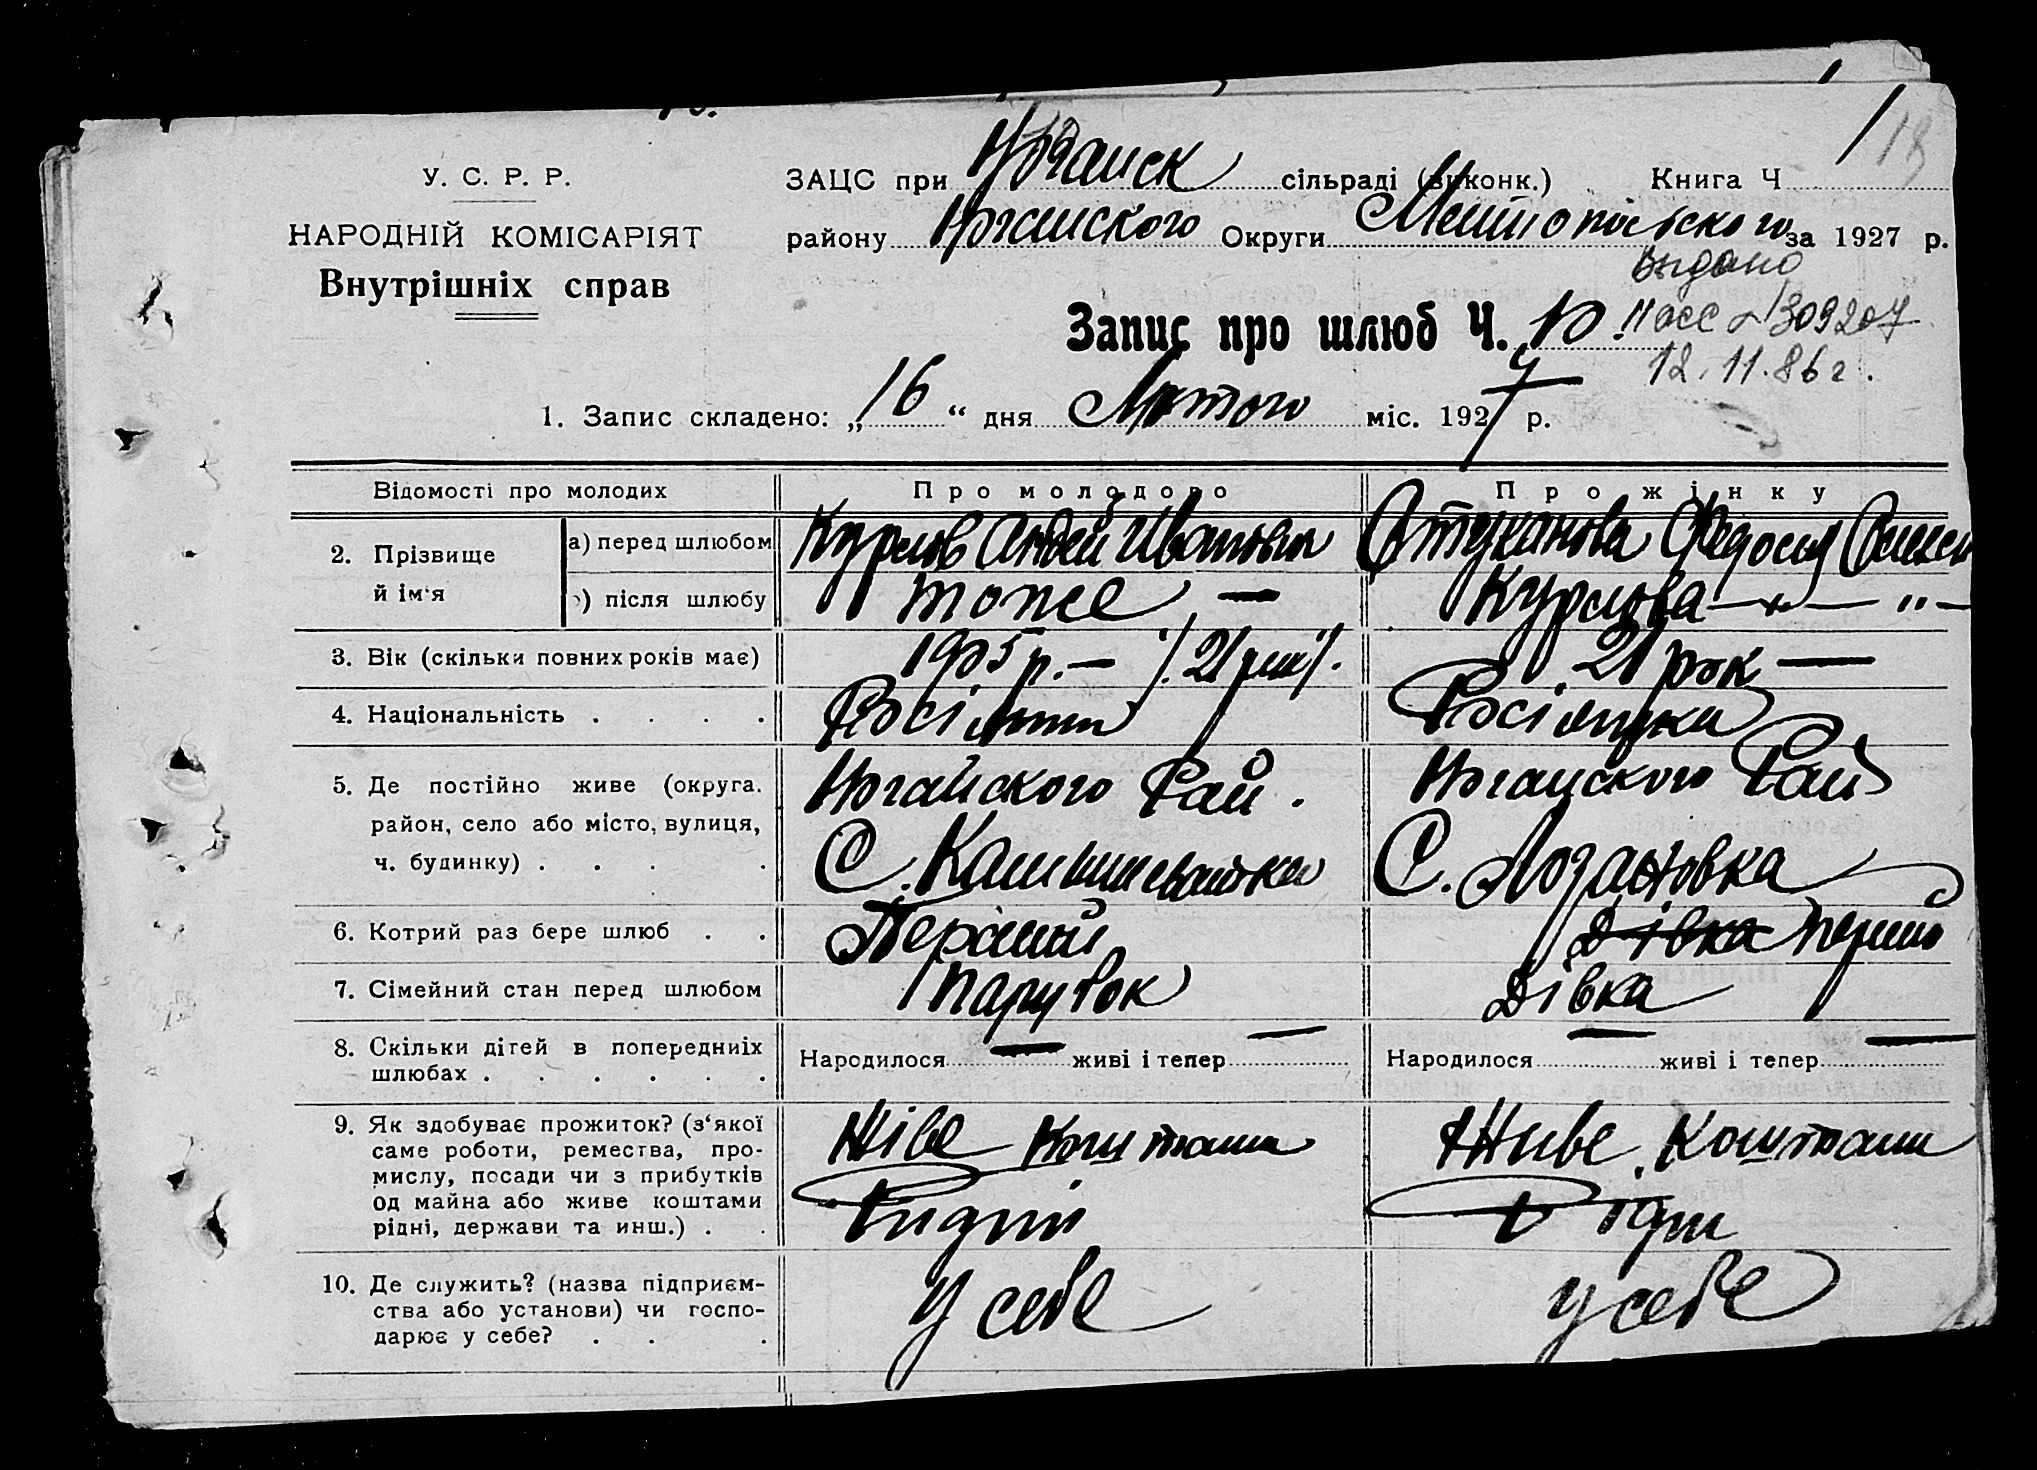 У. С. Р. Р.
НАРОДНІЙ КОМІСАРІЯТ
Внутрішніх справ
ЗАЦС при Ногайск сільраді (виконк.) Книга Ч
району Ногайского Округи за 1927 р.
выдано
Запис про шлюб Ч. 10. 309207
12.11.86 г.
1. Запис складено: „16“ дня Лютого міс. 1927 р.
Відомості про молодих Про молодого Про жінку
2. Прізвище й ім‘я
а) перед шлюбом Иванович Стуканова Федосия
б) після шлюбу тоже — Курлова — „ — " —
3. Вік (скільки повних років має) 1905 р. — /. 21 рік /. 21 рок —
4. Національність . . . . Росіянин Росіянка
5. Де постійно живе (округа. Ногайского Рай. Ногайского Рай
район, село або місто, вулиця,
ч. будинку) . . . . С. С. Лозановка
6. Котрий раз бере шлюб . . Перший Дівка Перший
7. Сімейний стан перед шлюбом Парубок Дівка
8. Скільки дітей в попередниіх Народилося — живі і тепер — Народилося — живі і тепер —
шлюбах . . . . . .
9. Як здобуває прожиток? (з‘якої Живе Коштами Живе Коштами
саме роботи, ремества, про-
мислу, посади чи з прибутків
од майна або живе коштами
рідні, держави та инш.) . . Ридни Рідни
10. Де служить? (назва підприєм- У себе У себе
ства або установи) чи госпо-
дарює у себе? . . .